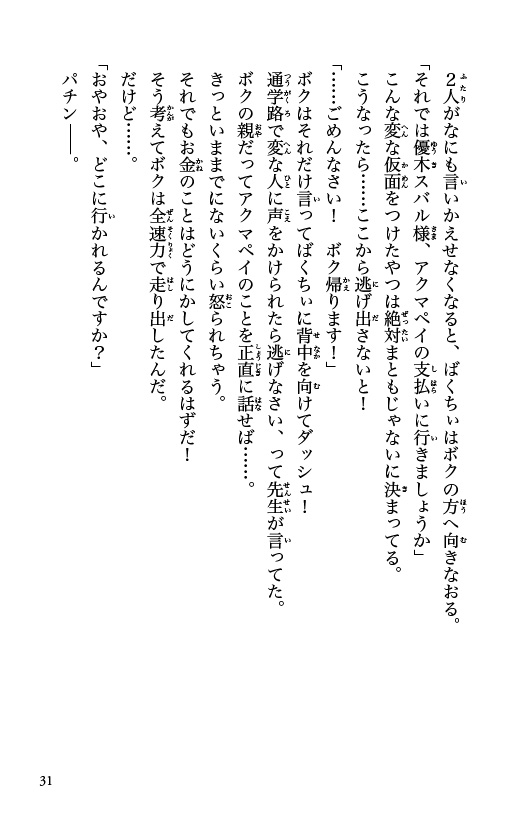 ２人がなにも言いかえせなくなると、ばくちぃはボクの方へ向きなおる。
「それでは優木スバル様、アクマペイの支払いに行きましょうか」
こんな変な仮面をつけたやつは絶対まともじゃないに決まってる。
こうなったら……ここから逃げ出さないと！
「……ごめんなさい！　ボク帰ります！」
ボクはそれだけ言ってばくちぃに背中を向けてダッシュ！
通学路で変な人に声をかけられたら逃げなさい、って先生が言ってた。
ボクの親だってアクマペイのことを正直に話せば……。
きっといままでにないくらい怒られちゃう。
それでもお金のことはどうにかしてくれるはずだ！
そう考えてボクは全速力で走り出したんだ。
だけど……。
「おやおや、どこに行かれるんですか？」
パチン――。
31